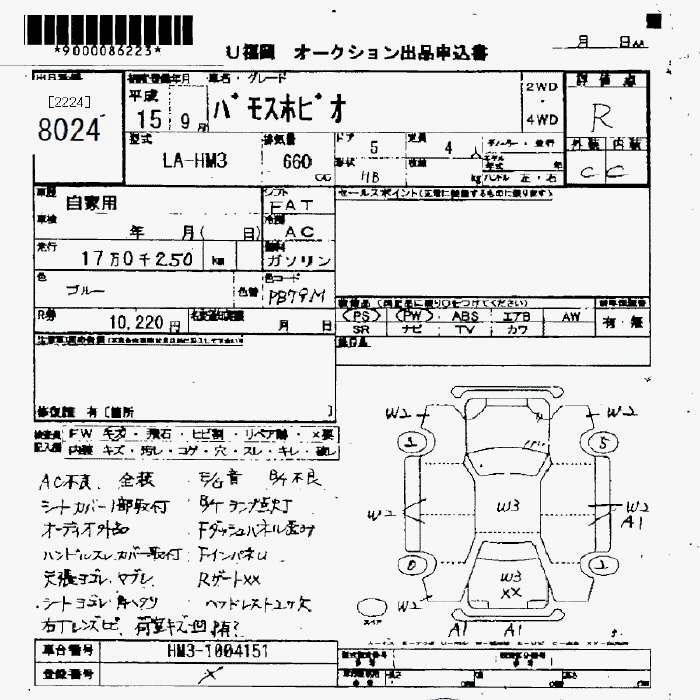 *9000086223*
U福岡 オークション出品申込書
月 日
車名・グレード 評価点
[2224]
8024
平成
15 9月
バモスホビオ
2WD
・
4WD
R
型式 排気量 ドア 5 定員 4人
外装 内装
LA-HM3 660 cc
形状 HB kg ハンドル 左・右
C C
車歴 自家用 シフト FAT
セールスポイント
車検 年 月( 日) 冷房 AC
走行 17万0千250 km 燃料 ガソリン
色 ブルー 色替 色コード PB79M
R券 10,220円 月 日
(PS) (PW) ABS エアB AW 有・無
SR ナビ TV カワ
修復歴 有 [箇所 ]
検査員 FW キズ・飛石・ヒビ割・リペア跡・×要
記入欄 内装 キズ・汚レ・コゲ・穴・スレ・キレ・破レ
AC不良、全装 E/G音 B/4不良
シートカバー1部取付 B/4ランプ点灯
オーディオ外品 Fダッシュパネル歪み
ハンドルスレ カバー取付 FインパネU
天張ヨゴレ ヤブレ RゲートXX
シートヨゴレ
W2 W2
3 5
W2 W3 W2
A1
0 2
W3
XX
W2
スペア
A1 A1
車台番号 HM3-1004151
登録番号